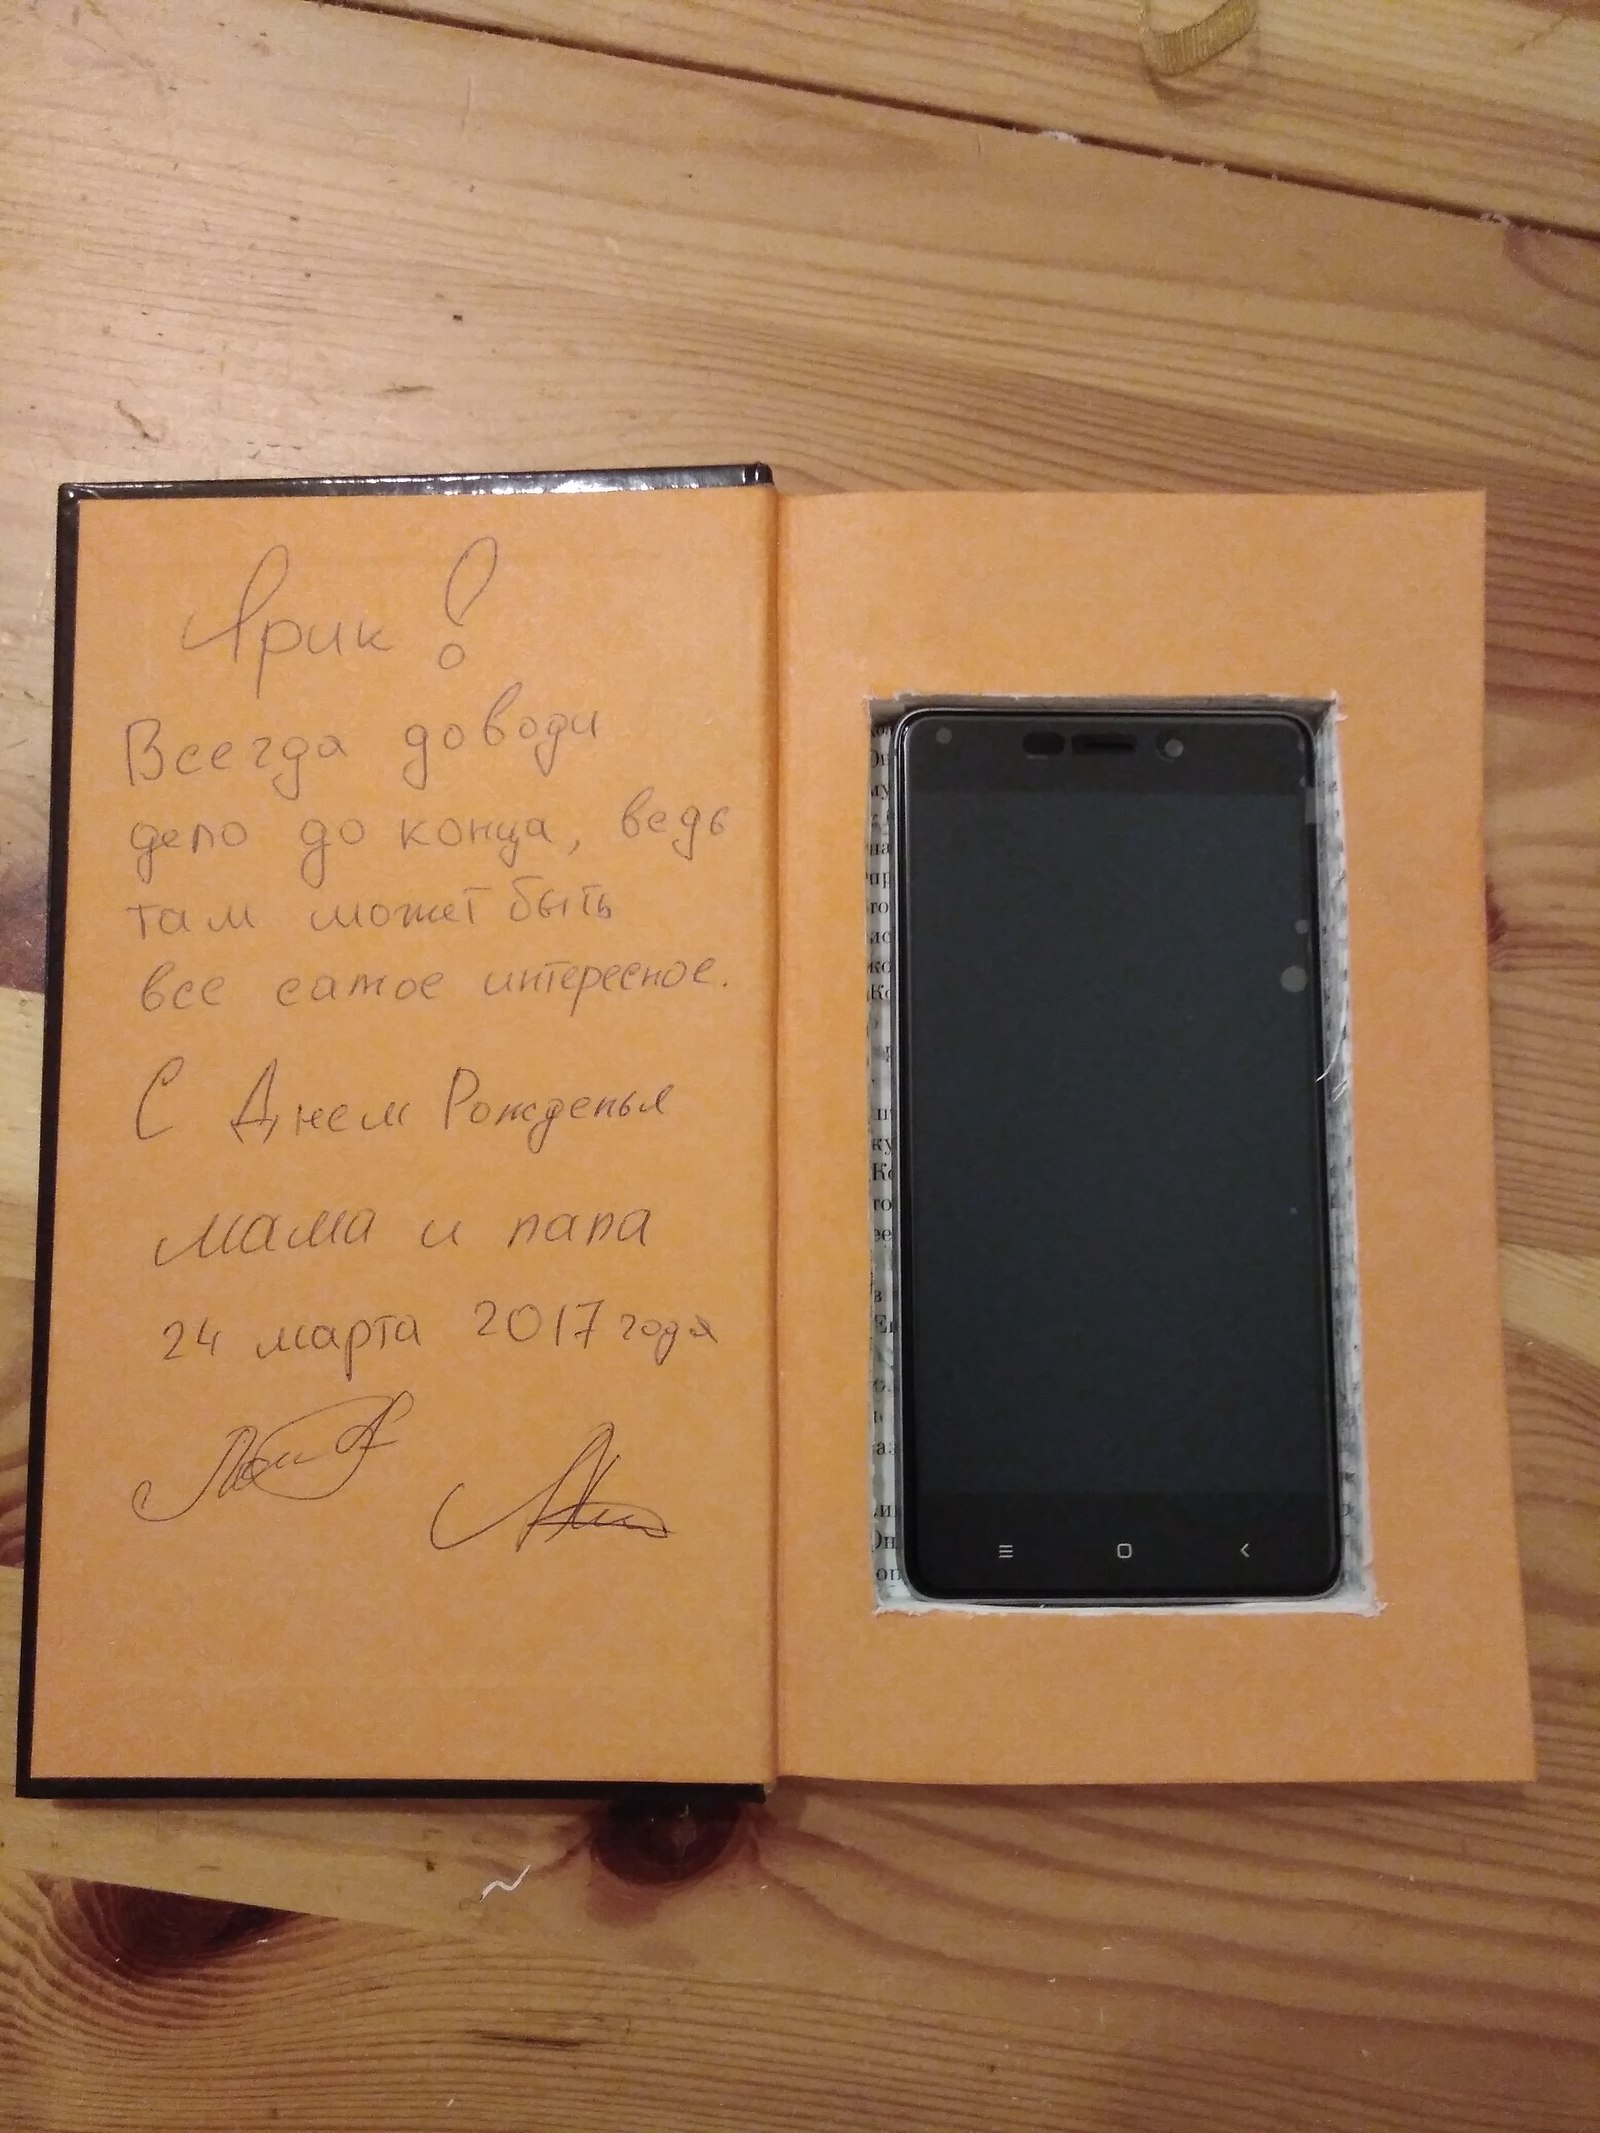 Ярик!
Всегда доводи
дело до конца, ведь
там может быть
все самое интересное.
С Днем Рожденья
мама и папа
24 марта 2017 года